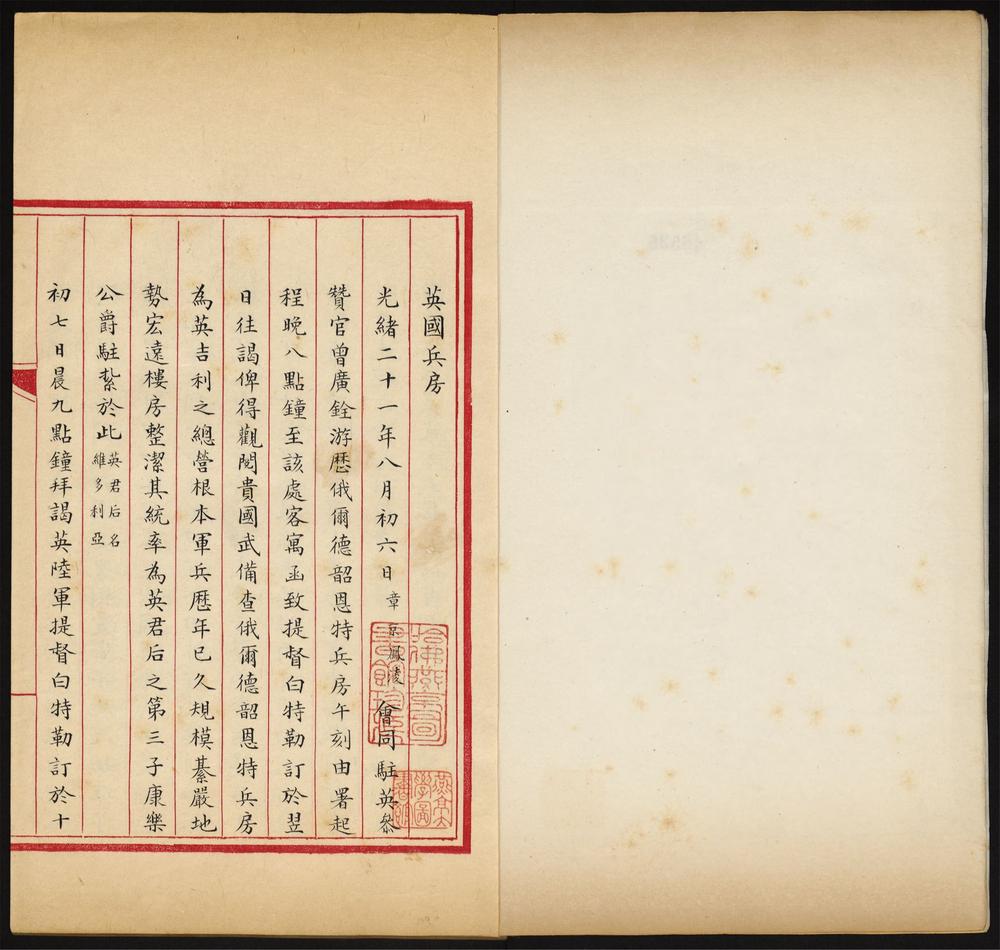 英國兵房
光緒二十一年八月初六日章京鳳淩會同駐英叅
贊官曾廣銓游歷俄爾德韶恩特兵房午刻由署起
程晚八點鐘至該處客寓函致提督白特勒訂於翌
日往謁俾得觀閱貴國武備查俄爾德韶恩特兵房
為英吉利之總營根本軍兵歷年已久規模綦嚴地
勢宏遠樓房整潔其統率為英君后之第三子康樂
公爵駐紮於此英君后名維多利亞
初七日晨九點鐘拜謁英陸軍提督白特勒訂於十
哈佛燕京圖書館珍藏